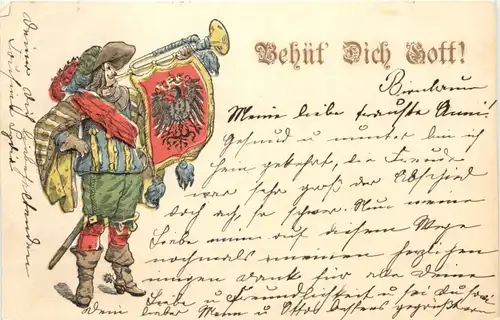 Behüt' Dich Gott!
Birnbaum
Meine liebe traute Anni!
Gesund und munter bin ich
heim gekehrt, die Freude
war sehr groß der Abschied
doch ach, so schwer. Nun meine
Liebe nim auf diesem Wege
nochmals meinen herzlichen
innigen dank für alle Deine
Liebe u Freundlichkeit u sei du
Dein lieber Mann u Ottos bestens gegrüßt
Deiner dich